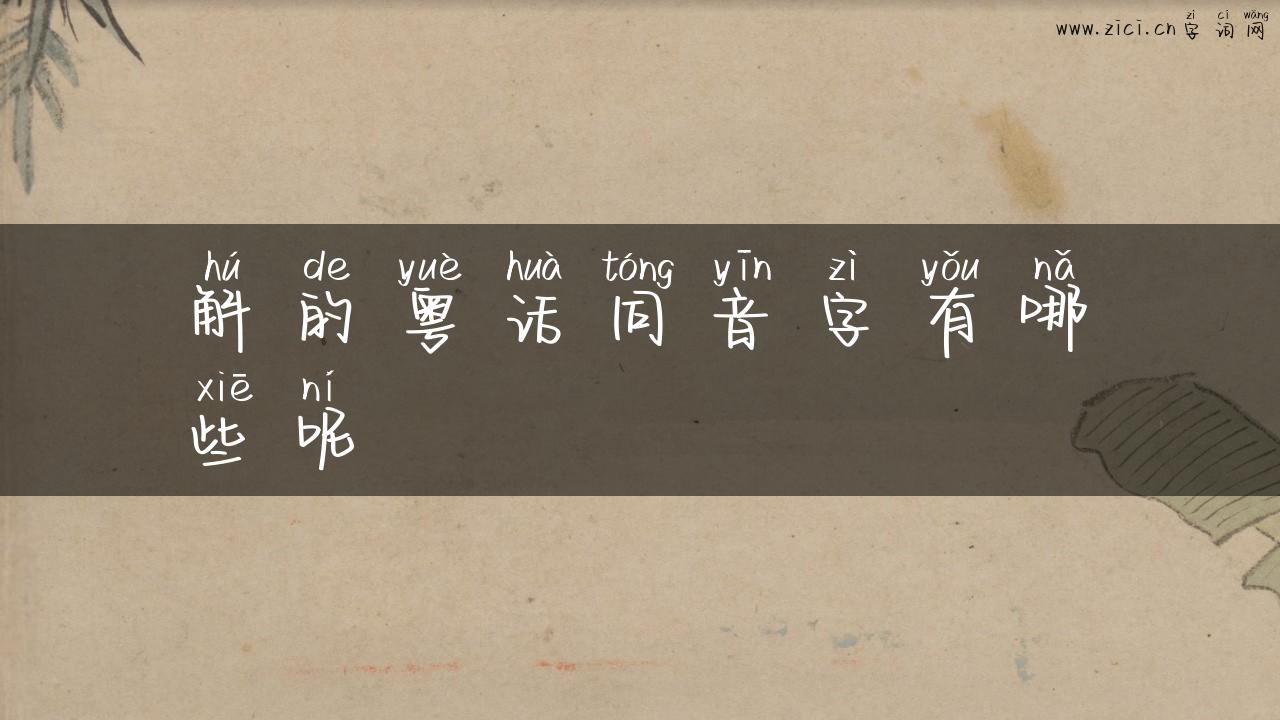 zì cí wǎng
www.zici.cn 字词网
hú de yuè huà tóng yīn zì yǒu nǎ
斛的粤话同音字有哪
xiē ní
些呢